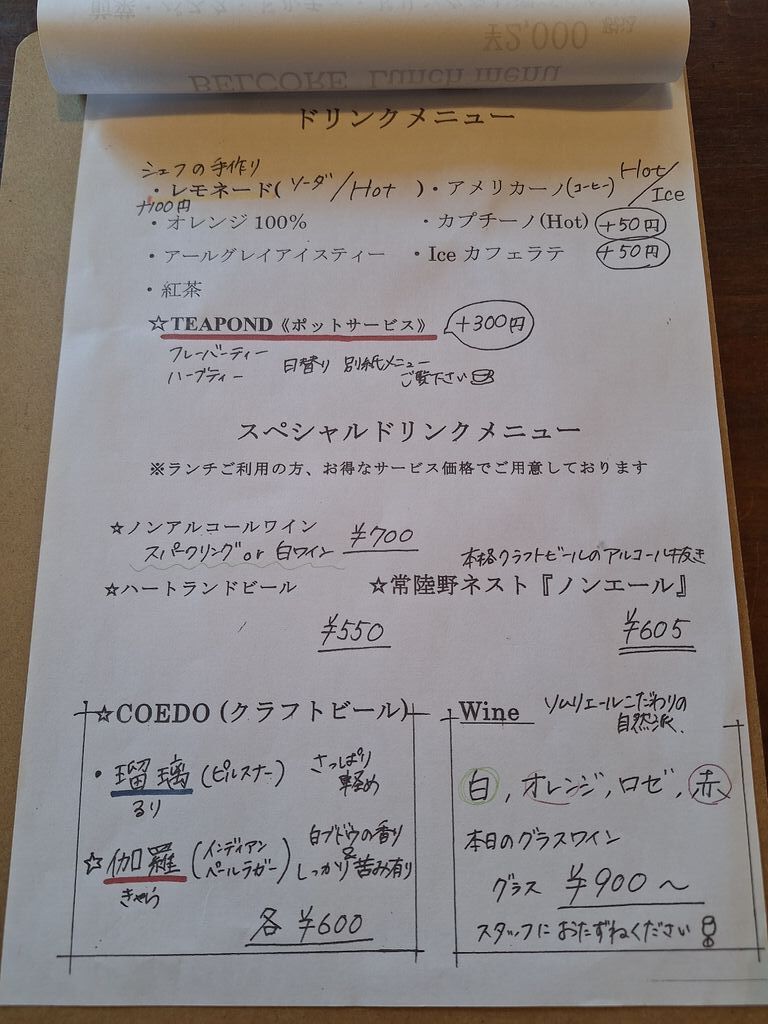 BELCORE Lunch menu
¥2,000 税込
ドリンクメニュー
シェフの手作り
・レモネード(ソーダ/Hot )・アメリカーノ(コーヒー) Hot/Ice
+100円
・オレンジ 100% ・カプチーノ(Hot) +50円
・アールグレイアイスティー ・Ice カフェラテ +50円
・紅茶
☆TEAPOND《ポットサービス》 +300円
フレーバーティー
ハーブティー 日替り 別紙メニュー
ご覧下さい
スペシャルドリンクメニュー
※ランチご利用の方、お得なサービス価格でご用意しております
☆ノンアルコールワイン ¥700
スパークリング or 白ワイン
本格クラフトビールのアルコール抜き
☆ハートランドビール ☆常陸野ネスト『ノンエール』
¥550 ¥605
☆COEDO (クラフトビール)
・瑠璃 (ピルスナー) さっぱり
軽め
るり
☆伽羅 (インディアン
ペールラガー) 白ブドウの香り
&
しっかり苦み有り
きゃら
各 ¥600
Wine ソムリエールこだわりの
自然派、
白, オレンジ, ロゼ, 赤
本日のグラスワイン
グラス ¥900～
スタッフにおたずねください